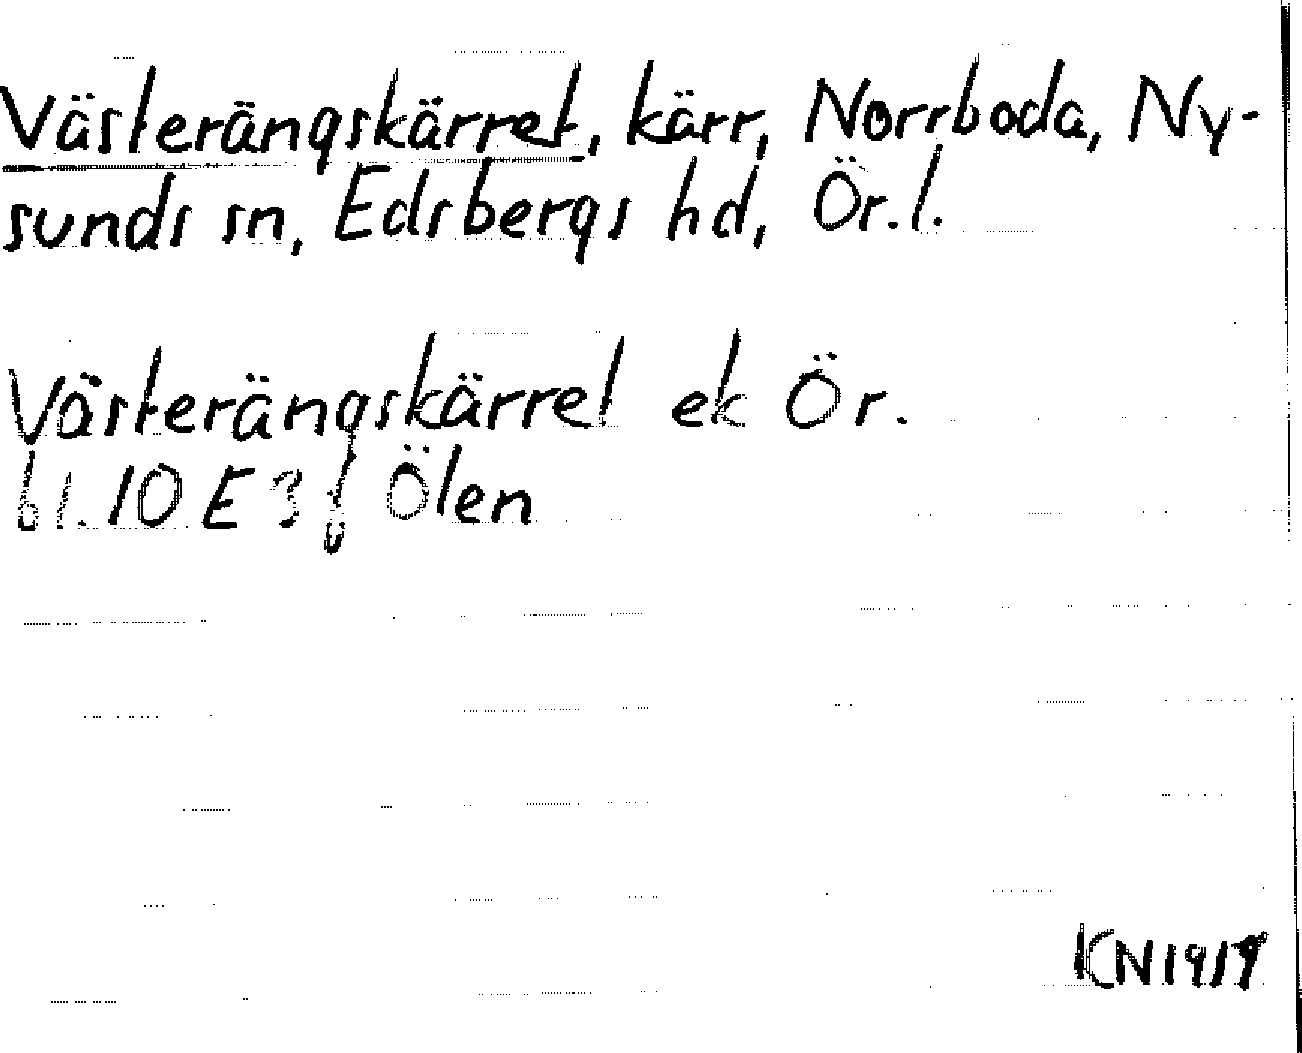 Västerängskärret, kärr, Norrboda, Ny-
sunds sn, Edsbergs hd, Ör.l.
Västerängskärret ek Ör.
61. 10 E 3 f Ölen
KN 1919